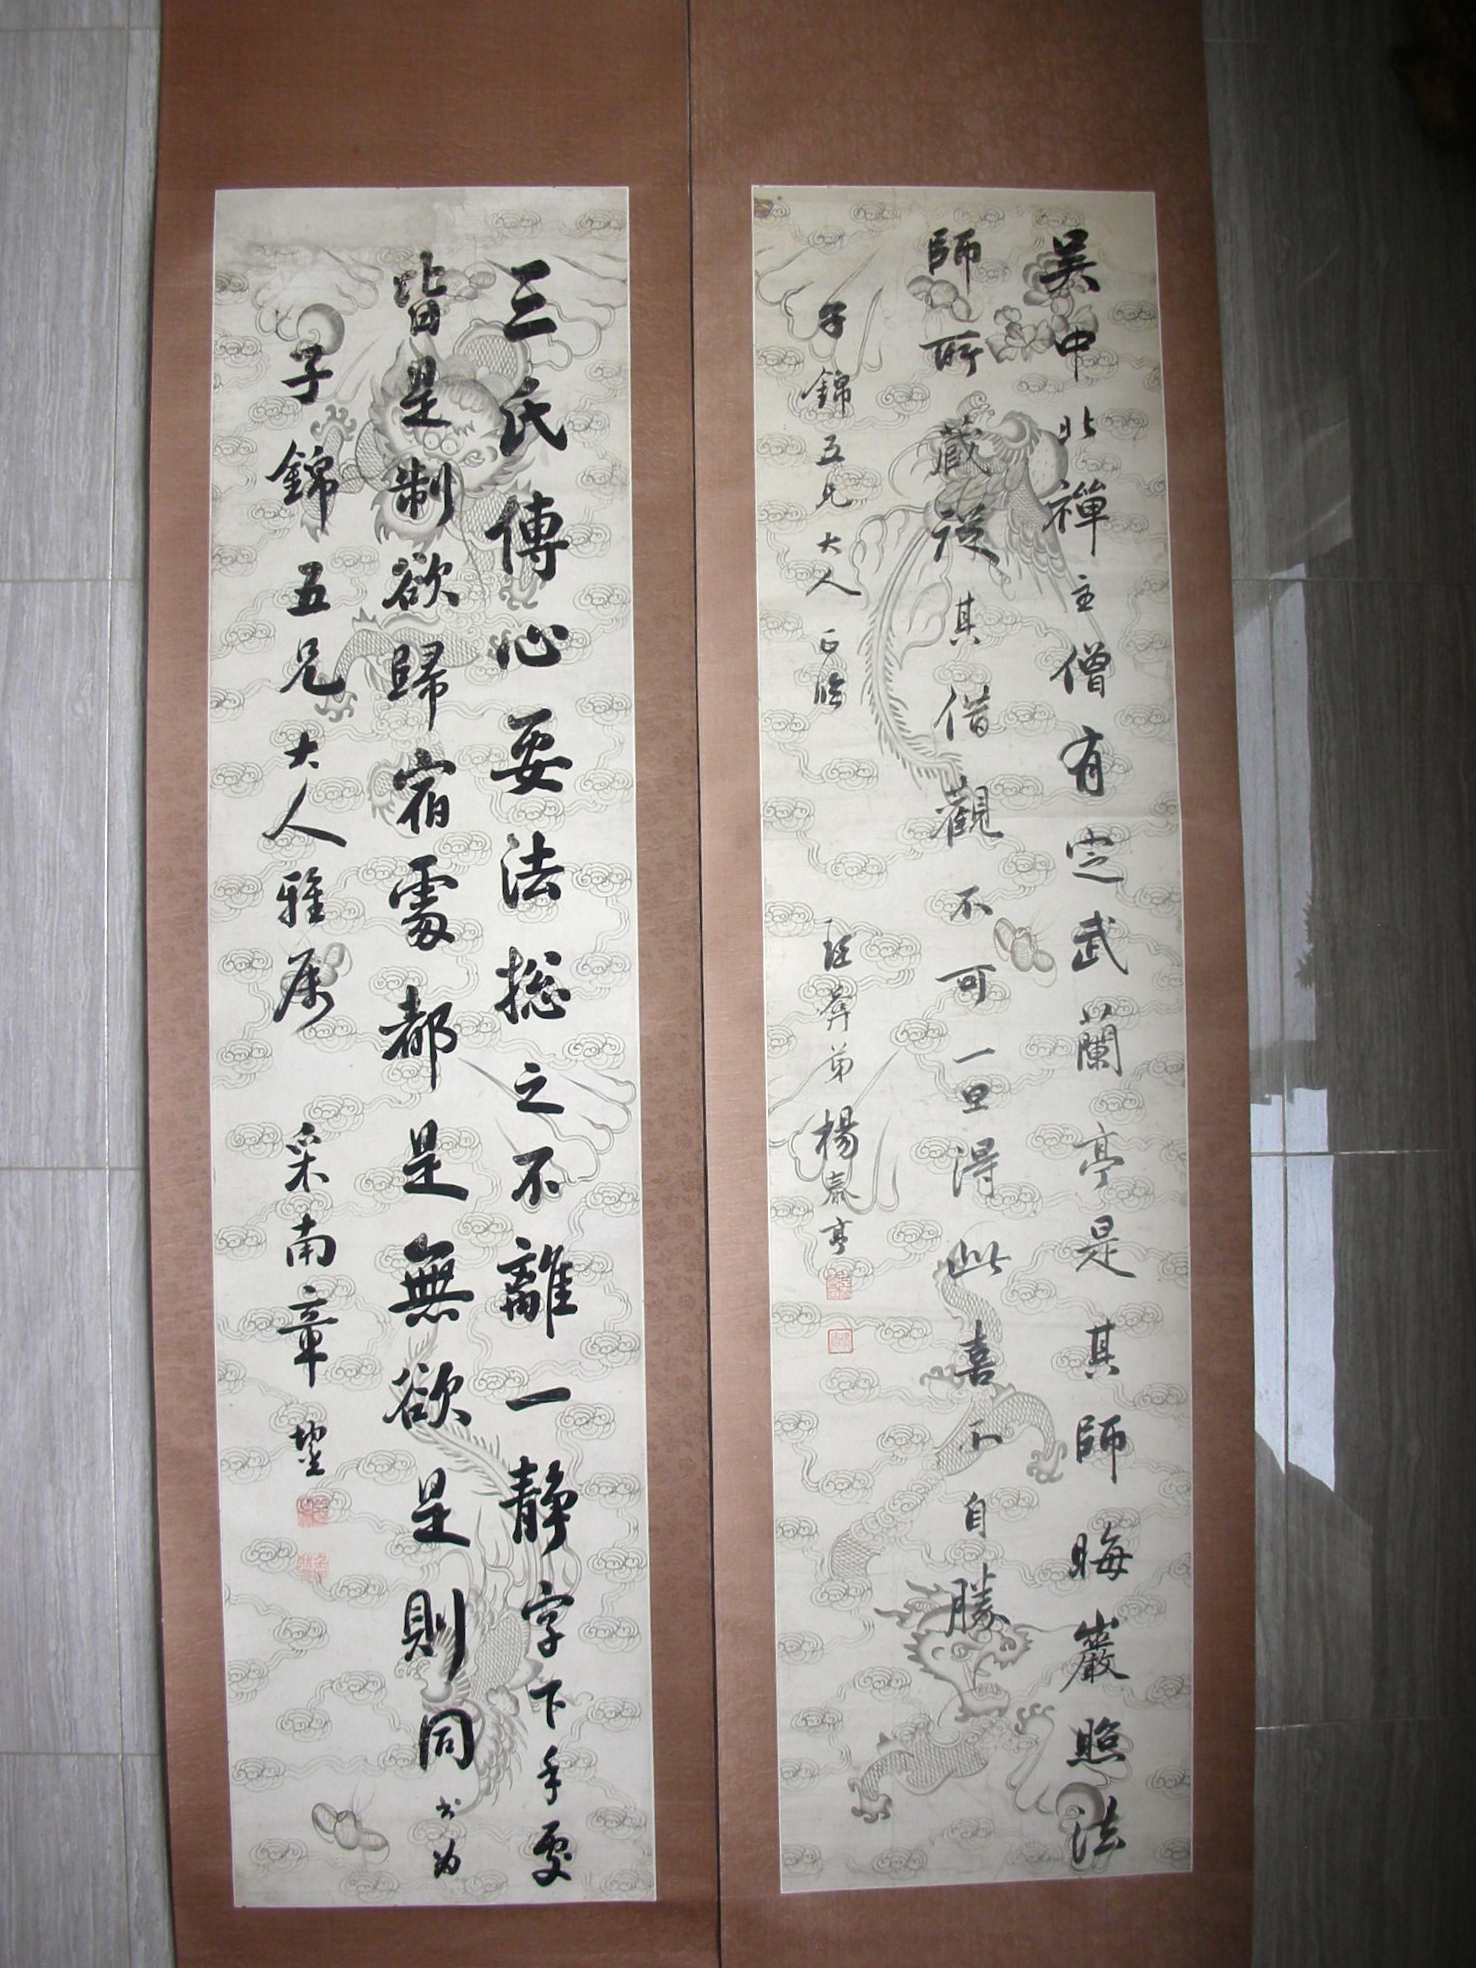 吴中北禪主僧有定武蘭亭是其師晦巖照法
師所藏從其借觀不可一旦得此喜不自勝
子錦五兄大人正臨
弟楊泰亨
三氏傳心要法総之不離一静字下手要
皆是制欲歸宿處都是無欲是則同书为
子錦五兄大人雅属
采南章鋆